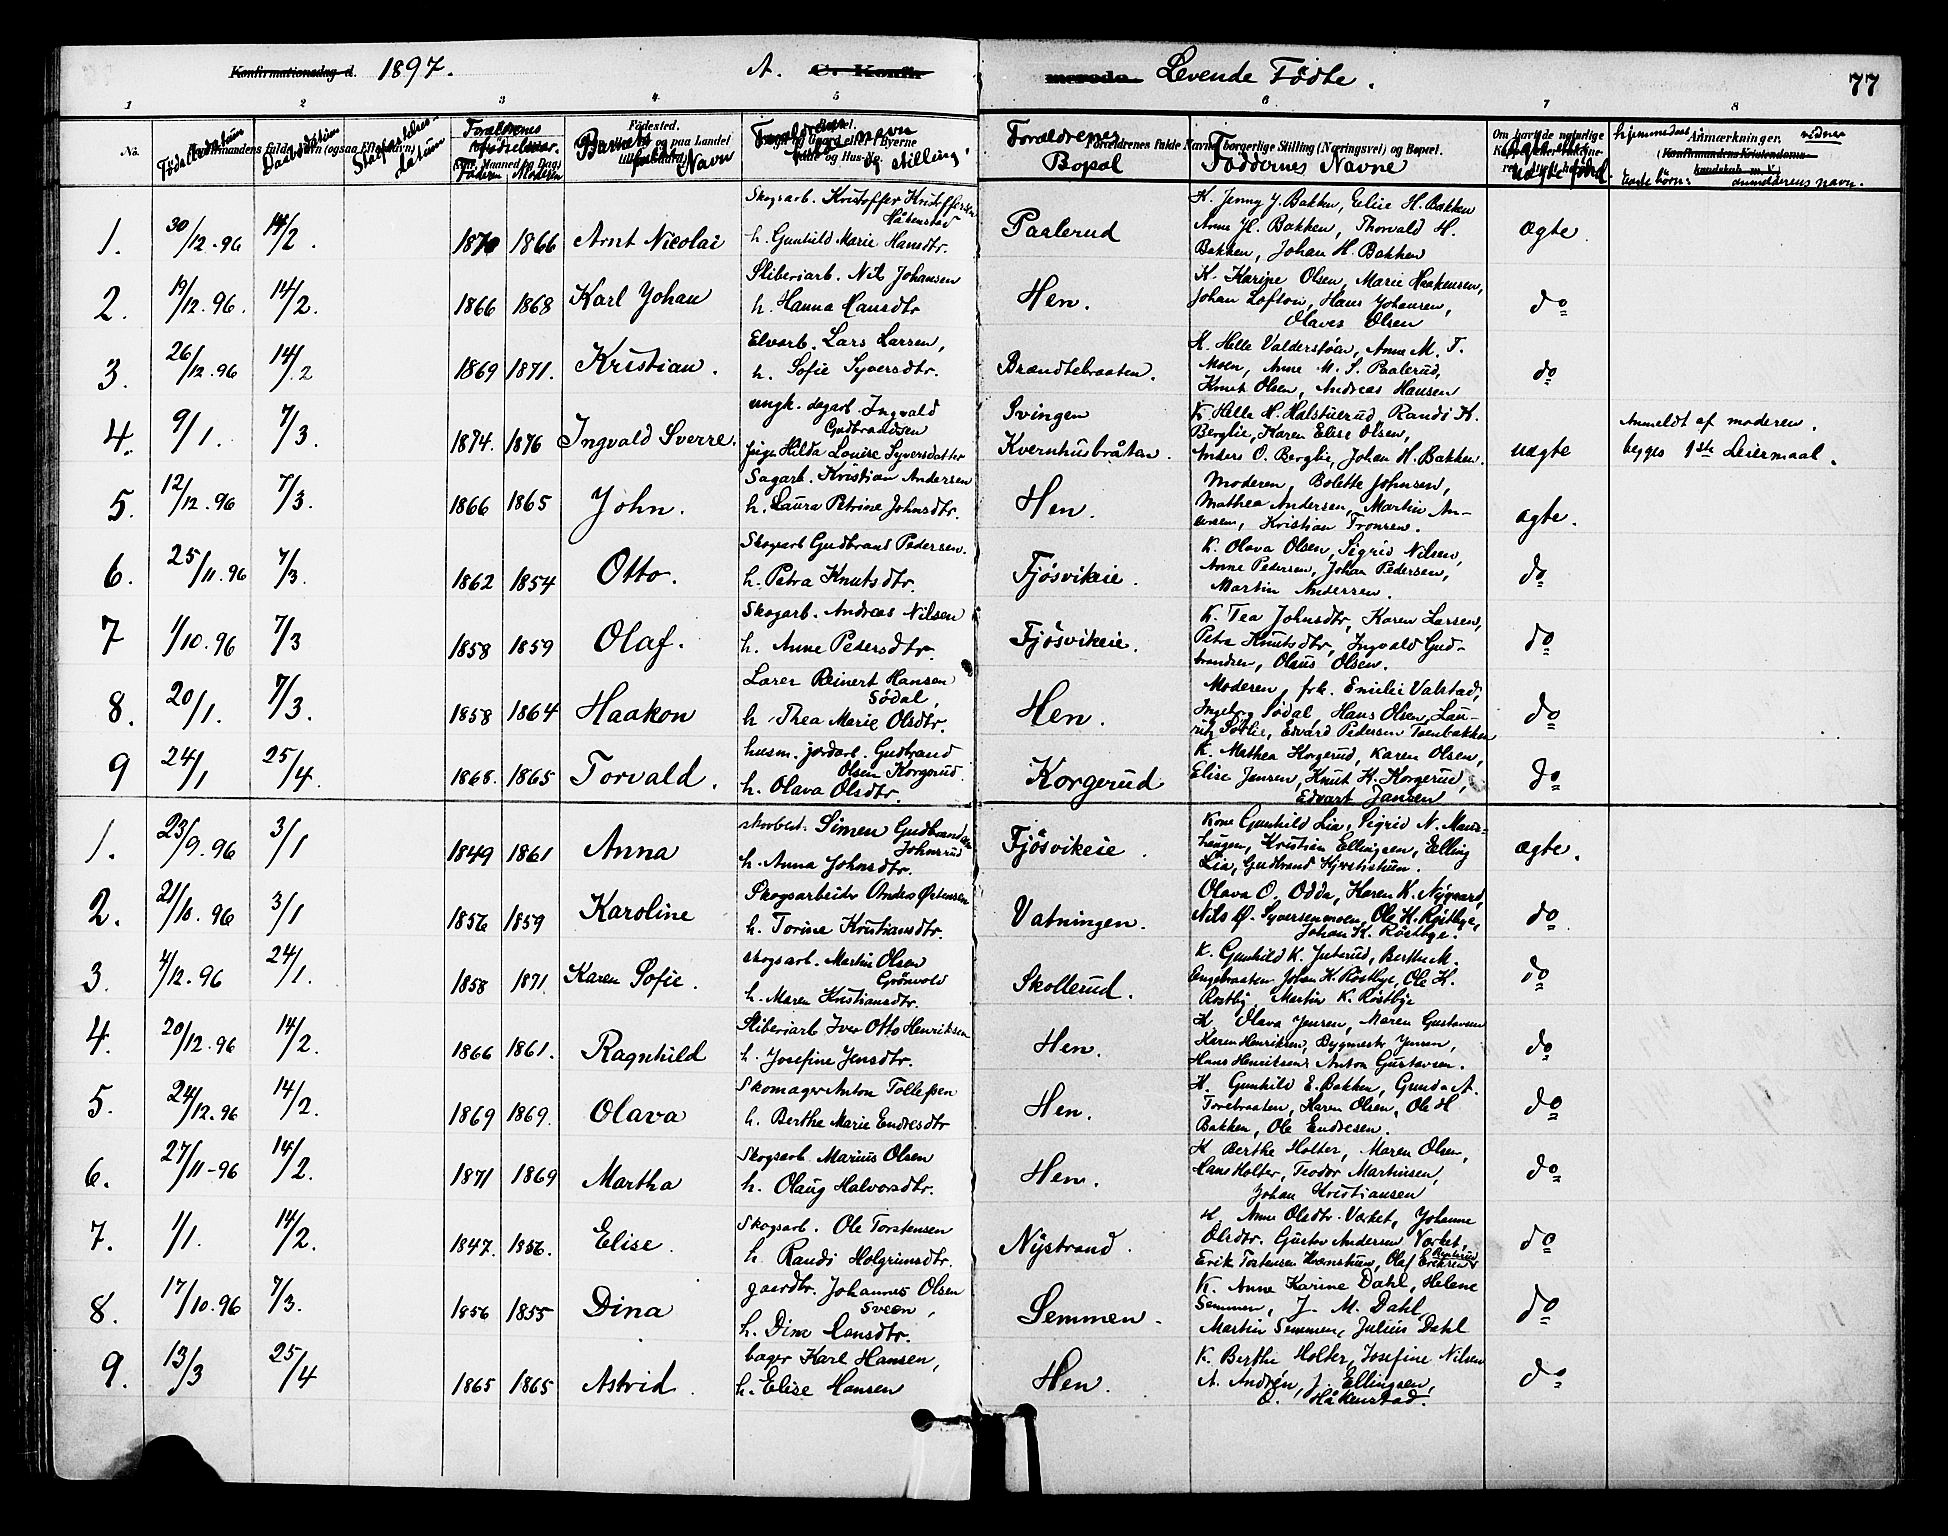 1897. A. Levende Fødte. 77
1 2 3 4 5 6 7 8
No. Fødselsdatum Daabsdatum Forældrenes Fødselsaar. Faderen Moderen Barnets Navn Forældrenes navn stilling Forældrenes Bopæl Faddernes Navne
Anmærkninger. anmelderens navn.
Skogsarb. Kristoffer Kristoffersen K. Jenny J. Bakken, Elise H. Bakken
Håkenstad
1. 30/12. 96 14/2. 1870 1866 Arnt Nicolai h. Gunhild Marie Hansdtr. Paalerud Anne H. Bakken, Thorvald H. ægte
Bakken, Johan H. Bakken
Sliberiarb. Nils Johansen K. Karine Olsen, Marie Haakensen,
2. 19/12. 96. 14/2. 1866 1868 Karl Johan h. Hanna Hansdtr Hen. Johan Lofton, Hans Johansen, do
Olaves Olsen
Elvarb. Lars Larsen, K. Helle Valdersføen, Anne M. T.
3. 26/12. 96 14/2 1869 1871. Kristian. h. Sofie Syversdtr. Brændtebraaten. Moen, Anne M. S. Paalerud, do
Knut Olsen, Andreas Hansen
ungk. dagarb. Ingvald Svingen K. Helle H. Halstuerud, Randi K.
Gudbrandsen Anmeldt af moderen.
4. 9/1. 7/3. 1874. 1876 Ingvald Sverre. Pige Hilda Louise Syversdatter Kvernhusbråten. Berglie, Karen Elise Olsen, uægte begges 1ste Leiermaal.
Anders O. Berglie, Johan H. Bakken.
Sagarb. Kristian Andersen Moderen, Bolette Johnsen,
5. 12/12. 96 7/3. 1866 1865 John. h. Laura Petrine Johnsdtr. Hen. Mathea Andersen, Martin An- ægte.
dersen, Kristian Tronsen.
Skogarb Gudbrand Pedersen. K. Olava Olsen, Sigrid Nilsen,
6. 25/11. 96 7/3. 1862 1854 Otto. h. Petra Knutsdtr. Fjøsvikeie. Anne Pedersen, Johan Pedersen, do
Martin Andersen.
Skogarb. Andreas Nilsen K. Tea Johnsdtr, Karen Larsen,
7 1/10. 96 7/3 1858 1859 Olaf. h. Anne Pedersdtr. Fjøsvikeie. Petra Knutsdtr, Ingvald Gud- do
brandsen, Olaus Olsen.
Lærer Reinert Hansen Moderen, frk. Emilie Valstad,
Södal,
8. 20/1. 7/3. 1858 1864 Haakon h. Thea Marie Olsdtr. Hen. Ingeborg Södal, Hans Olsen, Lau- do
ritz Sørlie, Edvard Pedersen Toenbakken
husm. jordarb. Gudbrand K. Mathea Korgerud, Karen Olsen,
Olsen Korgerud.
9 24/1 25/4. 1868. 1865 Torvald. h. Olava Olsdtr. Korgerud Elise Jansen, Knut H. Korgerud, do
Edvart Jansen
Simen Gudbrandsen Kone Gunhild Lia, Sigrid N. Maur-
Johnsrud
1. 23/9. 96 3/1 1849 1861 Anna h. Anna Johnsdtr. Fjøsvikeie. haugen, Kristian Ellingsen, Elling ægte.
Lia, Gudbrand Kjerstistuen.
Skogsarbeider Anders Østensen Olava O. Odda, Karen K. Nygaard,
2. 21/10. 96 3/1 1856 1859 Karoline h. Torine Kristiansdtr. Vatningen. Nils Ø. Syversenmoen, Ole K. Röstbye, do
Johan K. Röstbye.
skogsarb. Martin Olsen K. Gunhild K. Juterud, Berthe M.
Grönvold
3. 4/12. 96 24/1. 1858 1871. Karen Sofie. h. Maren Kristiansdtr. Skollerud. Engebraaten, Johan K. Röstbye, Ole K. do
Röstby, Martin K. Röstbye
Sliberiarb Iver Otto Henriksen K. Olava Jensen, Maren Gustavsen
4. 20/12. 96 14/2. 1866 1861. Ragnhild h. Josefine Jensdtr. Hen. Karen Henriksen, Bygmestr Jensen, do
Hans Henriksen, Anton Gustavsen.
Skomager Anton Tollefsen K. Gunhild E. Bakken, Gunda A.
5. 24/12. 96 14/2. 1869 1869. Olava h. Berthe Marie Endresdtr Hen. Torebraaten, Karen Olsen, Ole H do
Bakken, Ole Endresen.
Skogsarb. Marius Olsen K Berthe Holter, Maren Olsen,
6. 27/11-96 14/2. 1871 1869 Martha h. Olaug Halvorsdtr. Hen. Hans Holter, Teodor Martinsen, do
Johan Kristiansen
Skogsarb. Ole Torstensen K. Anne Olsdtr. Værket, Johanne
7. 1/1. 14/2. 1847. 1856. Elise. h. Randi Holgrimsdtr. Nystrand. Olsdtr. Gustav Andersen Værket, do
Erik Torstensen Kvernstuen, Olaf Eriksen
gaardbr. Johannes Olsen K. Anne Karine Dahl, Helene
Sveen,
8. 17/10. 96 7/3. 1856 1855 Dina h. Dina Hansdtr. Semmen. Semmen, J. M. Dahl, do
Martin Semmen, Julius Dahl
bager Karl Hansen, K. Berthe Holter, Josefine Nilsen
9. 13/3 25/4 1865 1865 Astrid. h. Elise Hansen Hen. A. Andrén, J. Ellingsen, do
O. Håkenstad.